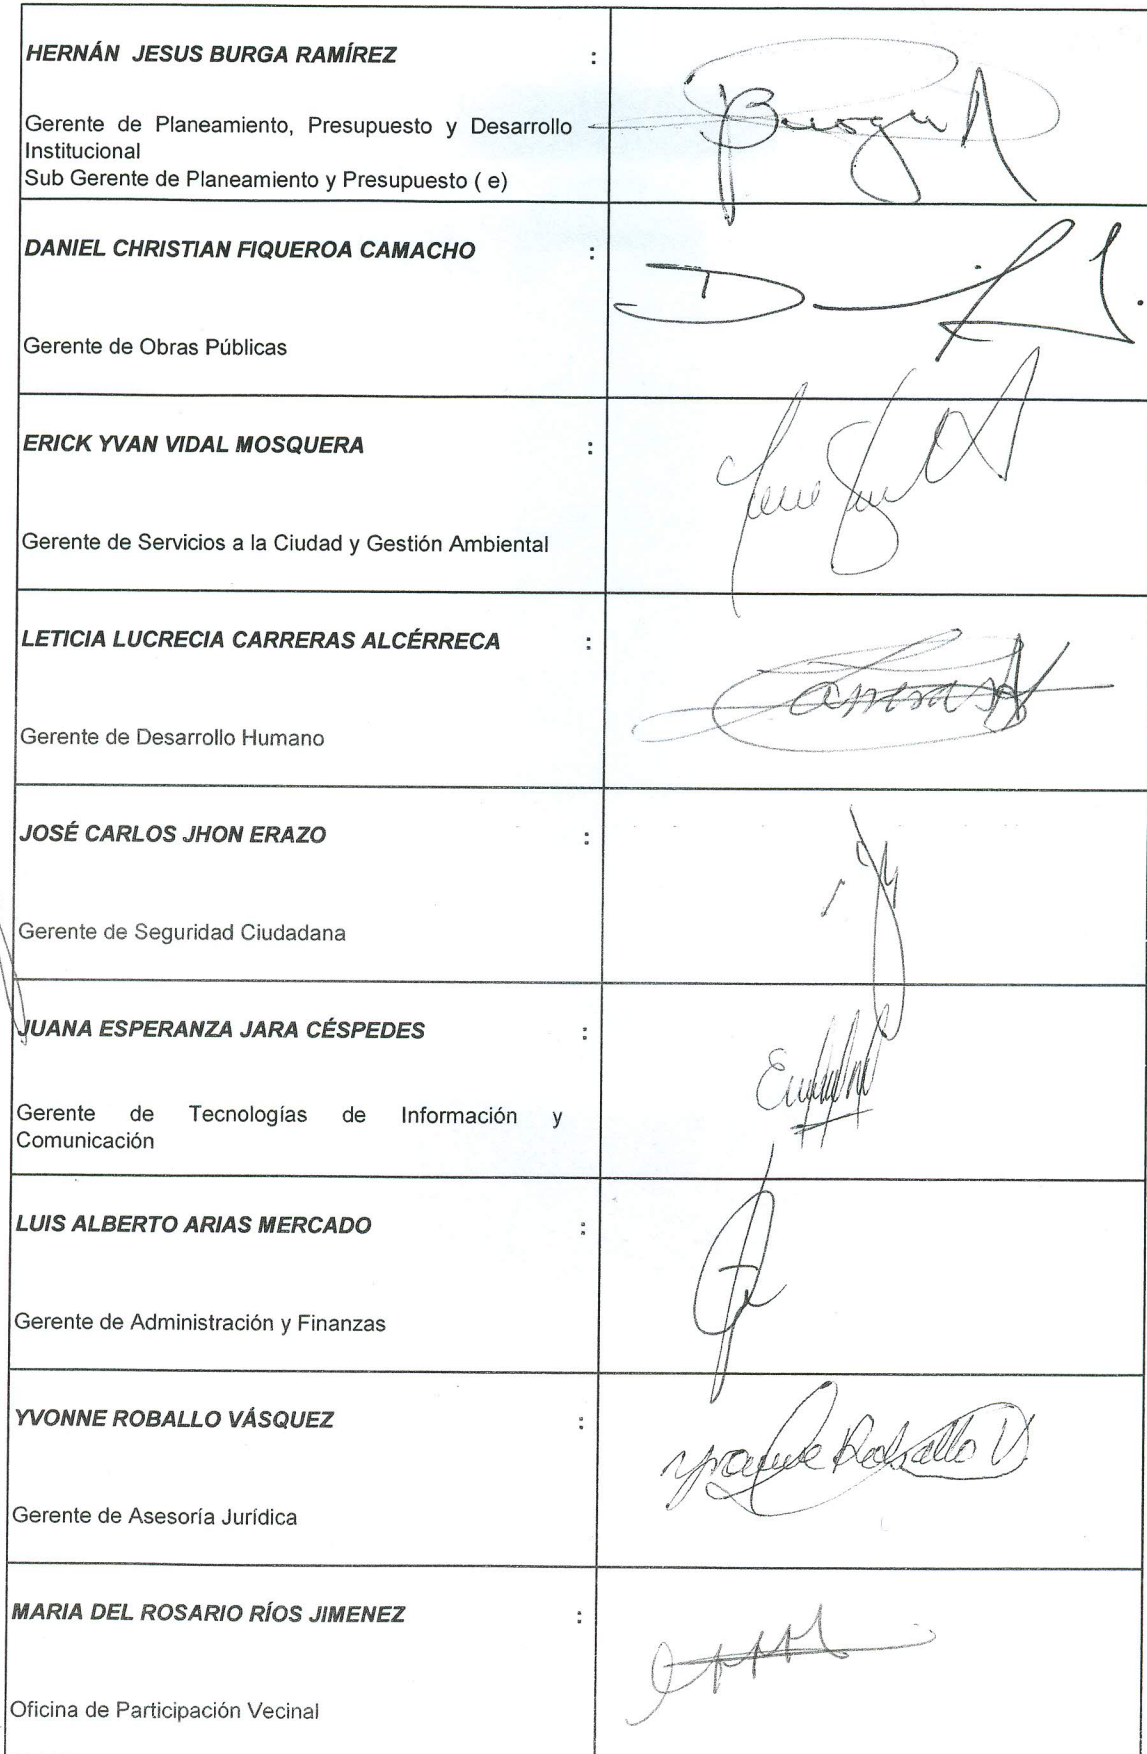 HERNÁN JESUS BURGA RAMÍREZ :
Gerente de Planeamiento, Presupuesto y Desarrollo
Institucional
Sub Gerente de Planeamiento y Presupuesto ( e)
DANIEL CHRISTIAN FIQUEROA CAMACHO :
Gerente de Obras Públicas
ERICK YVAN VIDAL MOSQUERA :
Gerente de Servicios a la Ciudad y Gestión Ambiental
LETICIA LUCRECIA CARRERAS ALCÉRRECA :
Gerente de Desarrollo Humano
JOSÉ CARLOS JHON ERAZO :
Gerente de Seguridad Ciudadana
JUANA ESPERANZA JARA CÉSPEDES :
Gerente de Tecnologías de Información y
Comunicación
LUIS ALBERTO ARIAS MERCADO :
Gerente de Administración y Finanzas
YVONNE ROBALLO VÁSQUEZ :
Gerente de Asesoría Jurídica
Yvonne Roballo V
MARIA DEL ROSARIO RÍOS JIMENEZ :
Oficina de Participación Vecinal